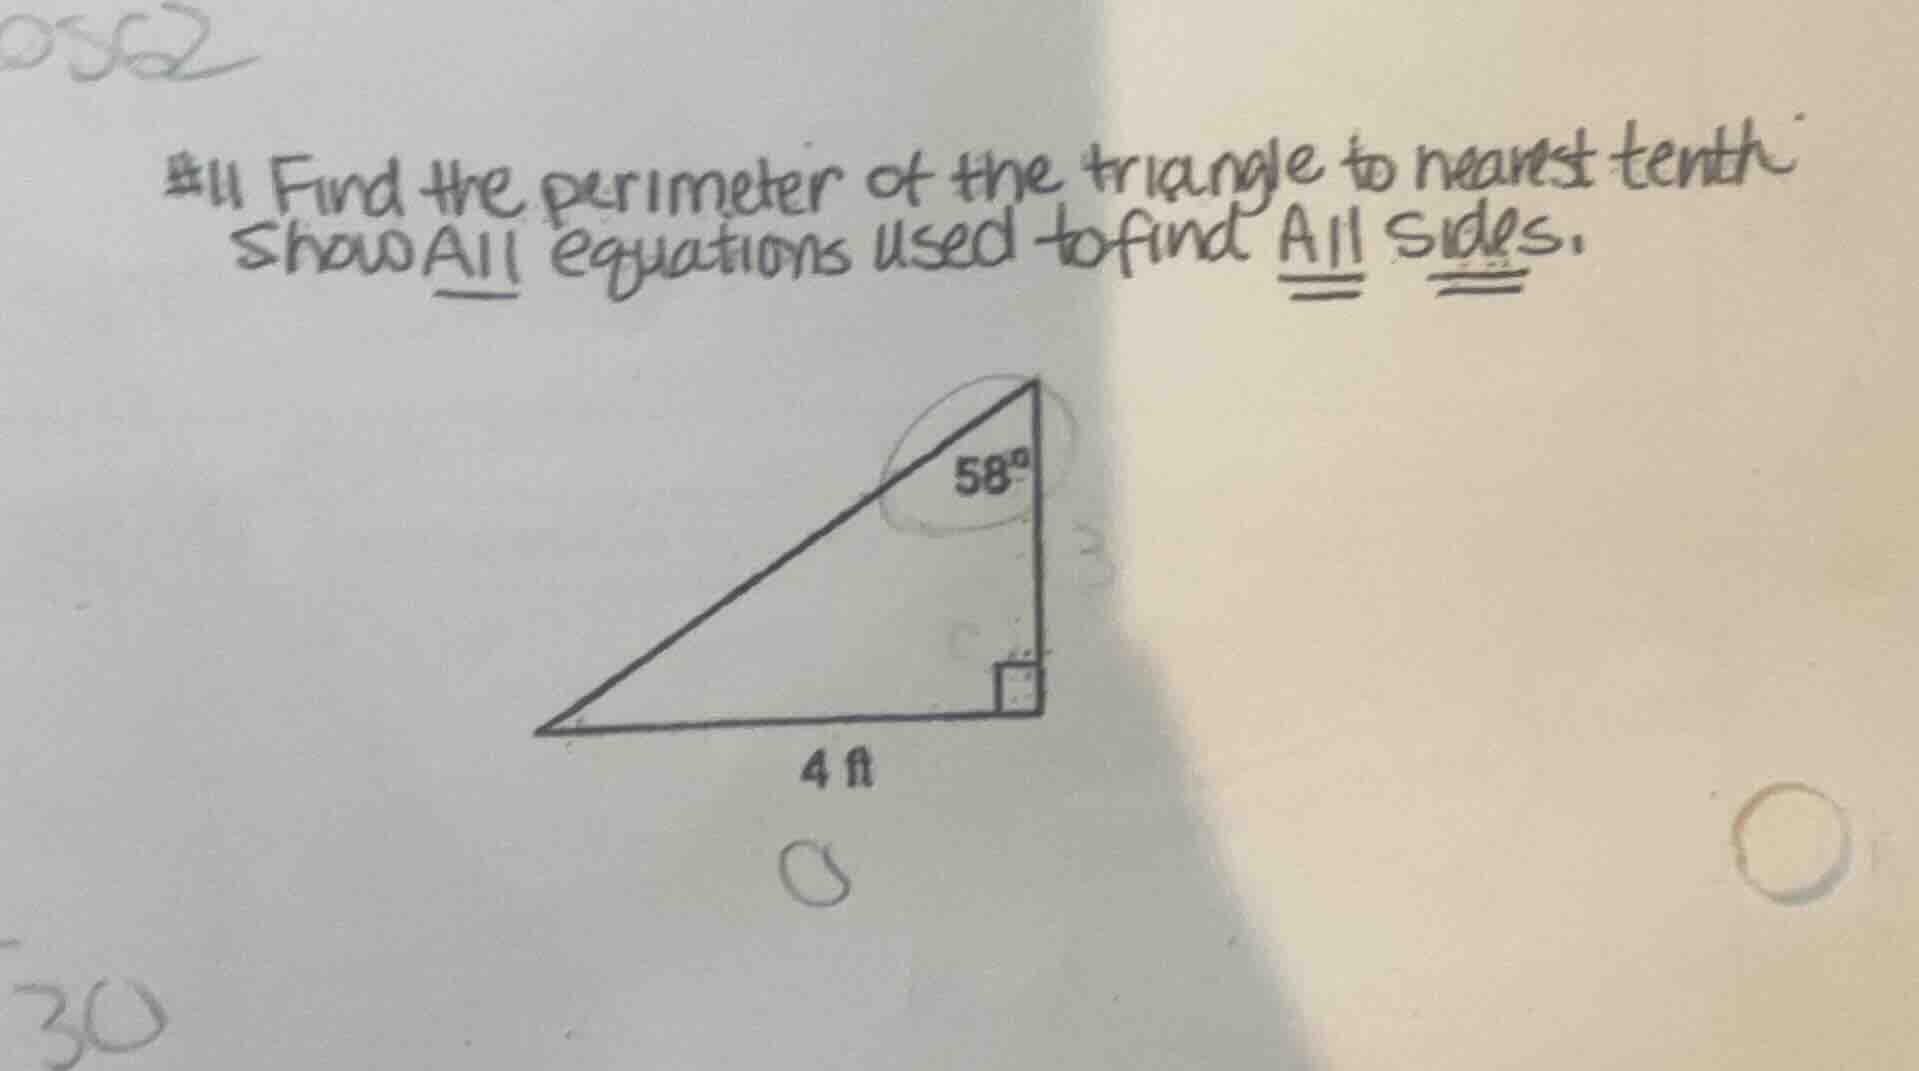 0562
#11 Find the perimeter of the triangle to nearest tenth
Show All equations used to find All sides.
58°
4 ft
30